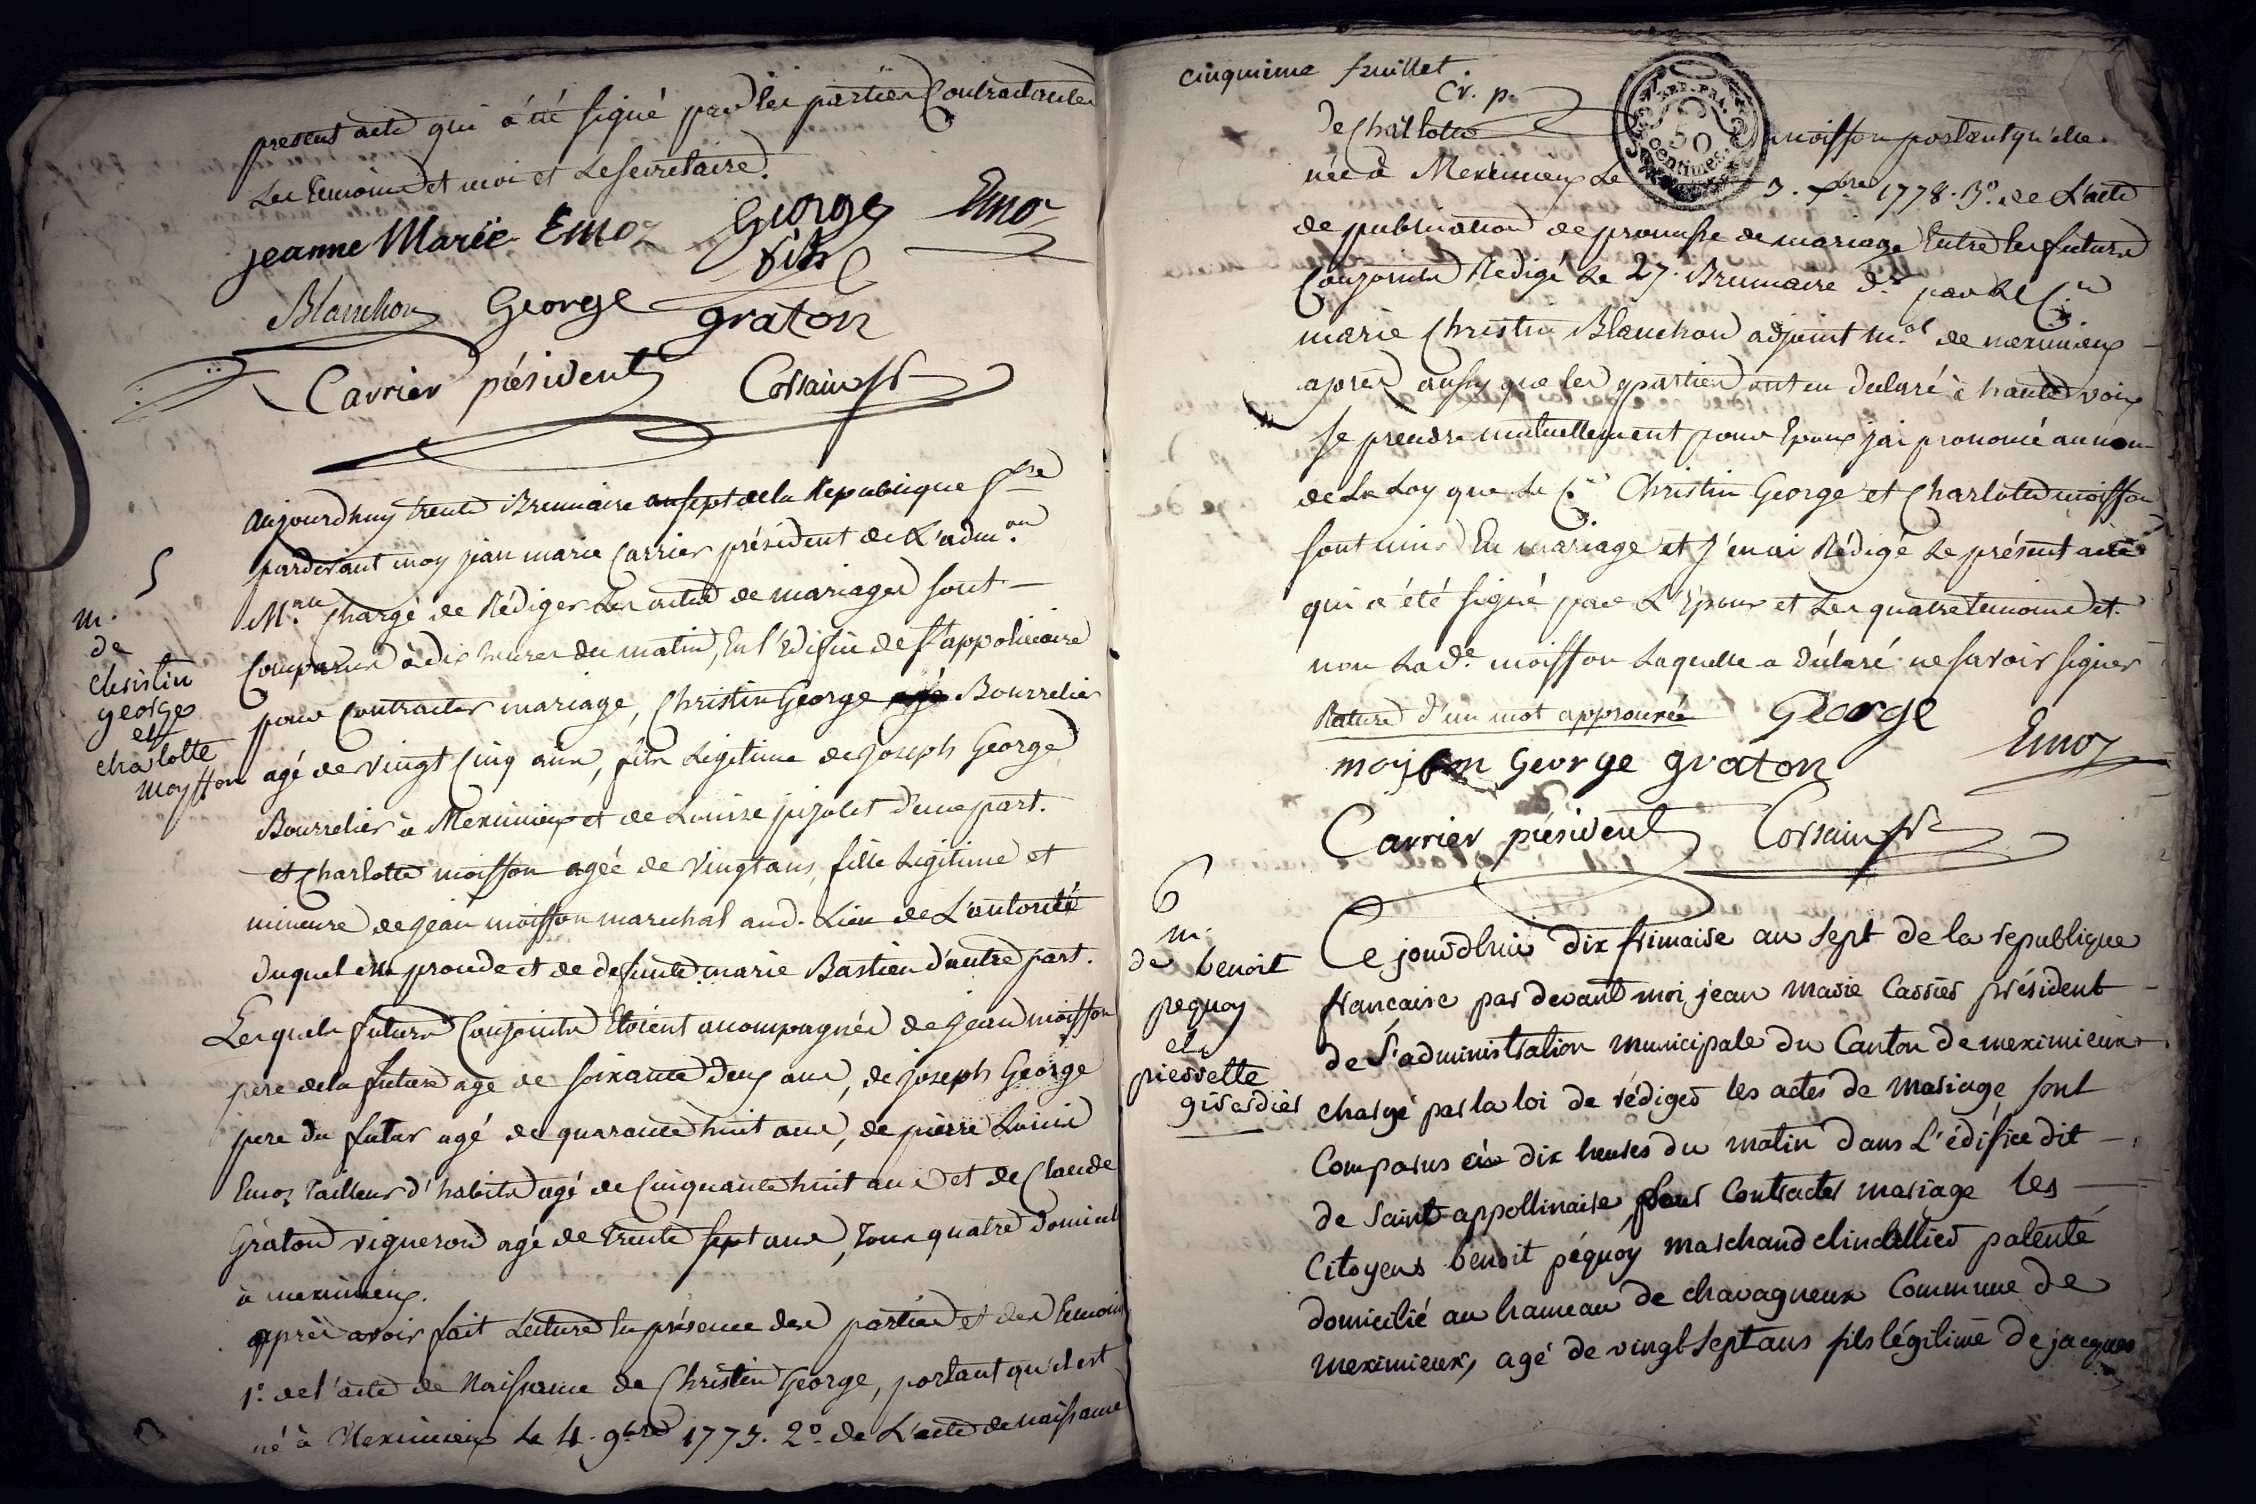 present acte qui a été signé par les parties Contractantes
Les temoins et moi et Le secretaire.
jeanne Marie Emoz George fils Emoz
Blanchon George graton
Carrier président Corsain
5
m.
de
christin
george
et
charlotte
moysson
aujourdhuy trente Brumaire an sept de la Republique f.se
pardevant moy jean marie Carrier président de L'adm.on
M.le Chargé de Rédiger Les actes de mariages sont
Comparus à dix heures du matin, En l'Edifice de St appolinaire
pour Contracter mariage, Christin George Bourrelier
agé de vingt Cinq ans, fils Légitime de joseph George
Bourrelier à Meximieux et de Louise d'une part.
et Charlotte moisson agée de vingt ans, fille Légitime et
mineure de jean moisson marechal aud. Lieu de L'autorité
duquel elle procede et de defunte marie Bastien d'autre part.
Lesquels futurs Conjoints Etoient acompagnés de jean moisson
pere de la future agé de soixante deux ans, de joseph George
pere du futur agé de quarante huit ans, de pierre Louis
Emoz Tailleur d'habits agé de Cinquante huit ans et de Claude
Graton vigneron agé de trente sept ans, tous quatre domicil
à meximieux.
après avoir fait Lecture En présence des parties et des temoins
1.° de l'acte de Naissance de Christin George, portant qu'il est
né à Meximieux Le 4. 9bre 1773. 2.° de L'acte de naissance
cinquieme feuillet
de Charlotte moisson portant qu'elle
née à Meximieux Le 1778. 3.° de L'acte
REP. FRA.
50
centimes
de publication de promesse de mariage Entre les futurs
Conjoints Redigé Le 27. Brumaire d.r par Le C.en
marie Christin Blanchon adjoint m.al de meximieux
après aussy que les parties ont eu déclaré à haute voix
se prendre mutuellement pour Epoux j'ai prononcé au nom
de La Loy que Le C.en Christin George et Charlotte moisson
sont unis En mariage et J'en ai Rédigé Le présent acte
qui a été signé par L'Epoux et Les quatre temoins et
non La d.e moisson Laquelle a déclaré ne savoir signer
Rature d'un mot approuvée George
moyson George graton Emoz
Carrier président Corsain
6
m.
de benoit
pequoy
et
pierrette
girardier
Ce jourdhui dix frimaire an sept de la republique
francaise par devant moi jean marie Carrier président
de L'administration municipale du Canton de meximieux
chargé par la loi de rédiger les actes de mariage sont
Comparus à dix heures du matin dans L'édifice dit
de Saint appollinaire pour Contracter mariage les
Citoyens benoit péquoy marchand clincallier patenté
domicilié au hameau de chavagneux Commune de
meximieux, agé de vingt sept ans fils légitime de jacques